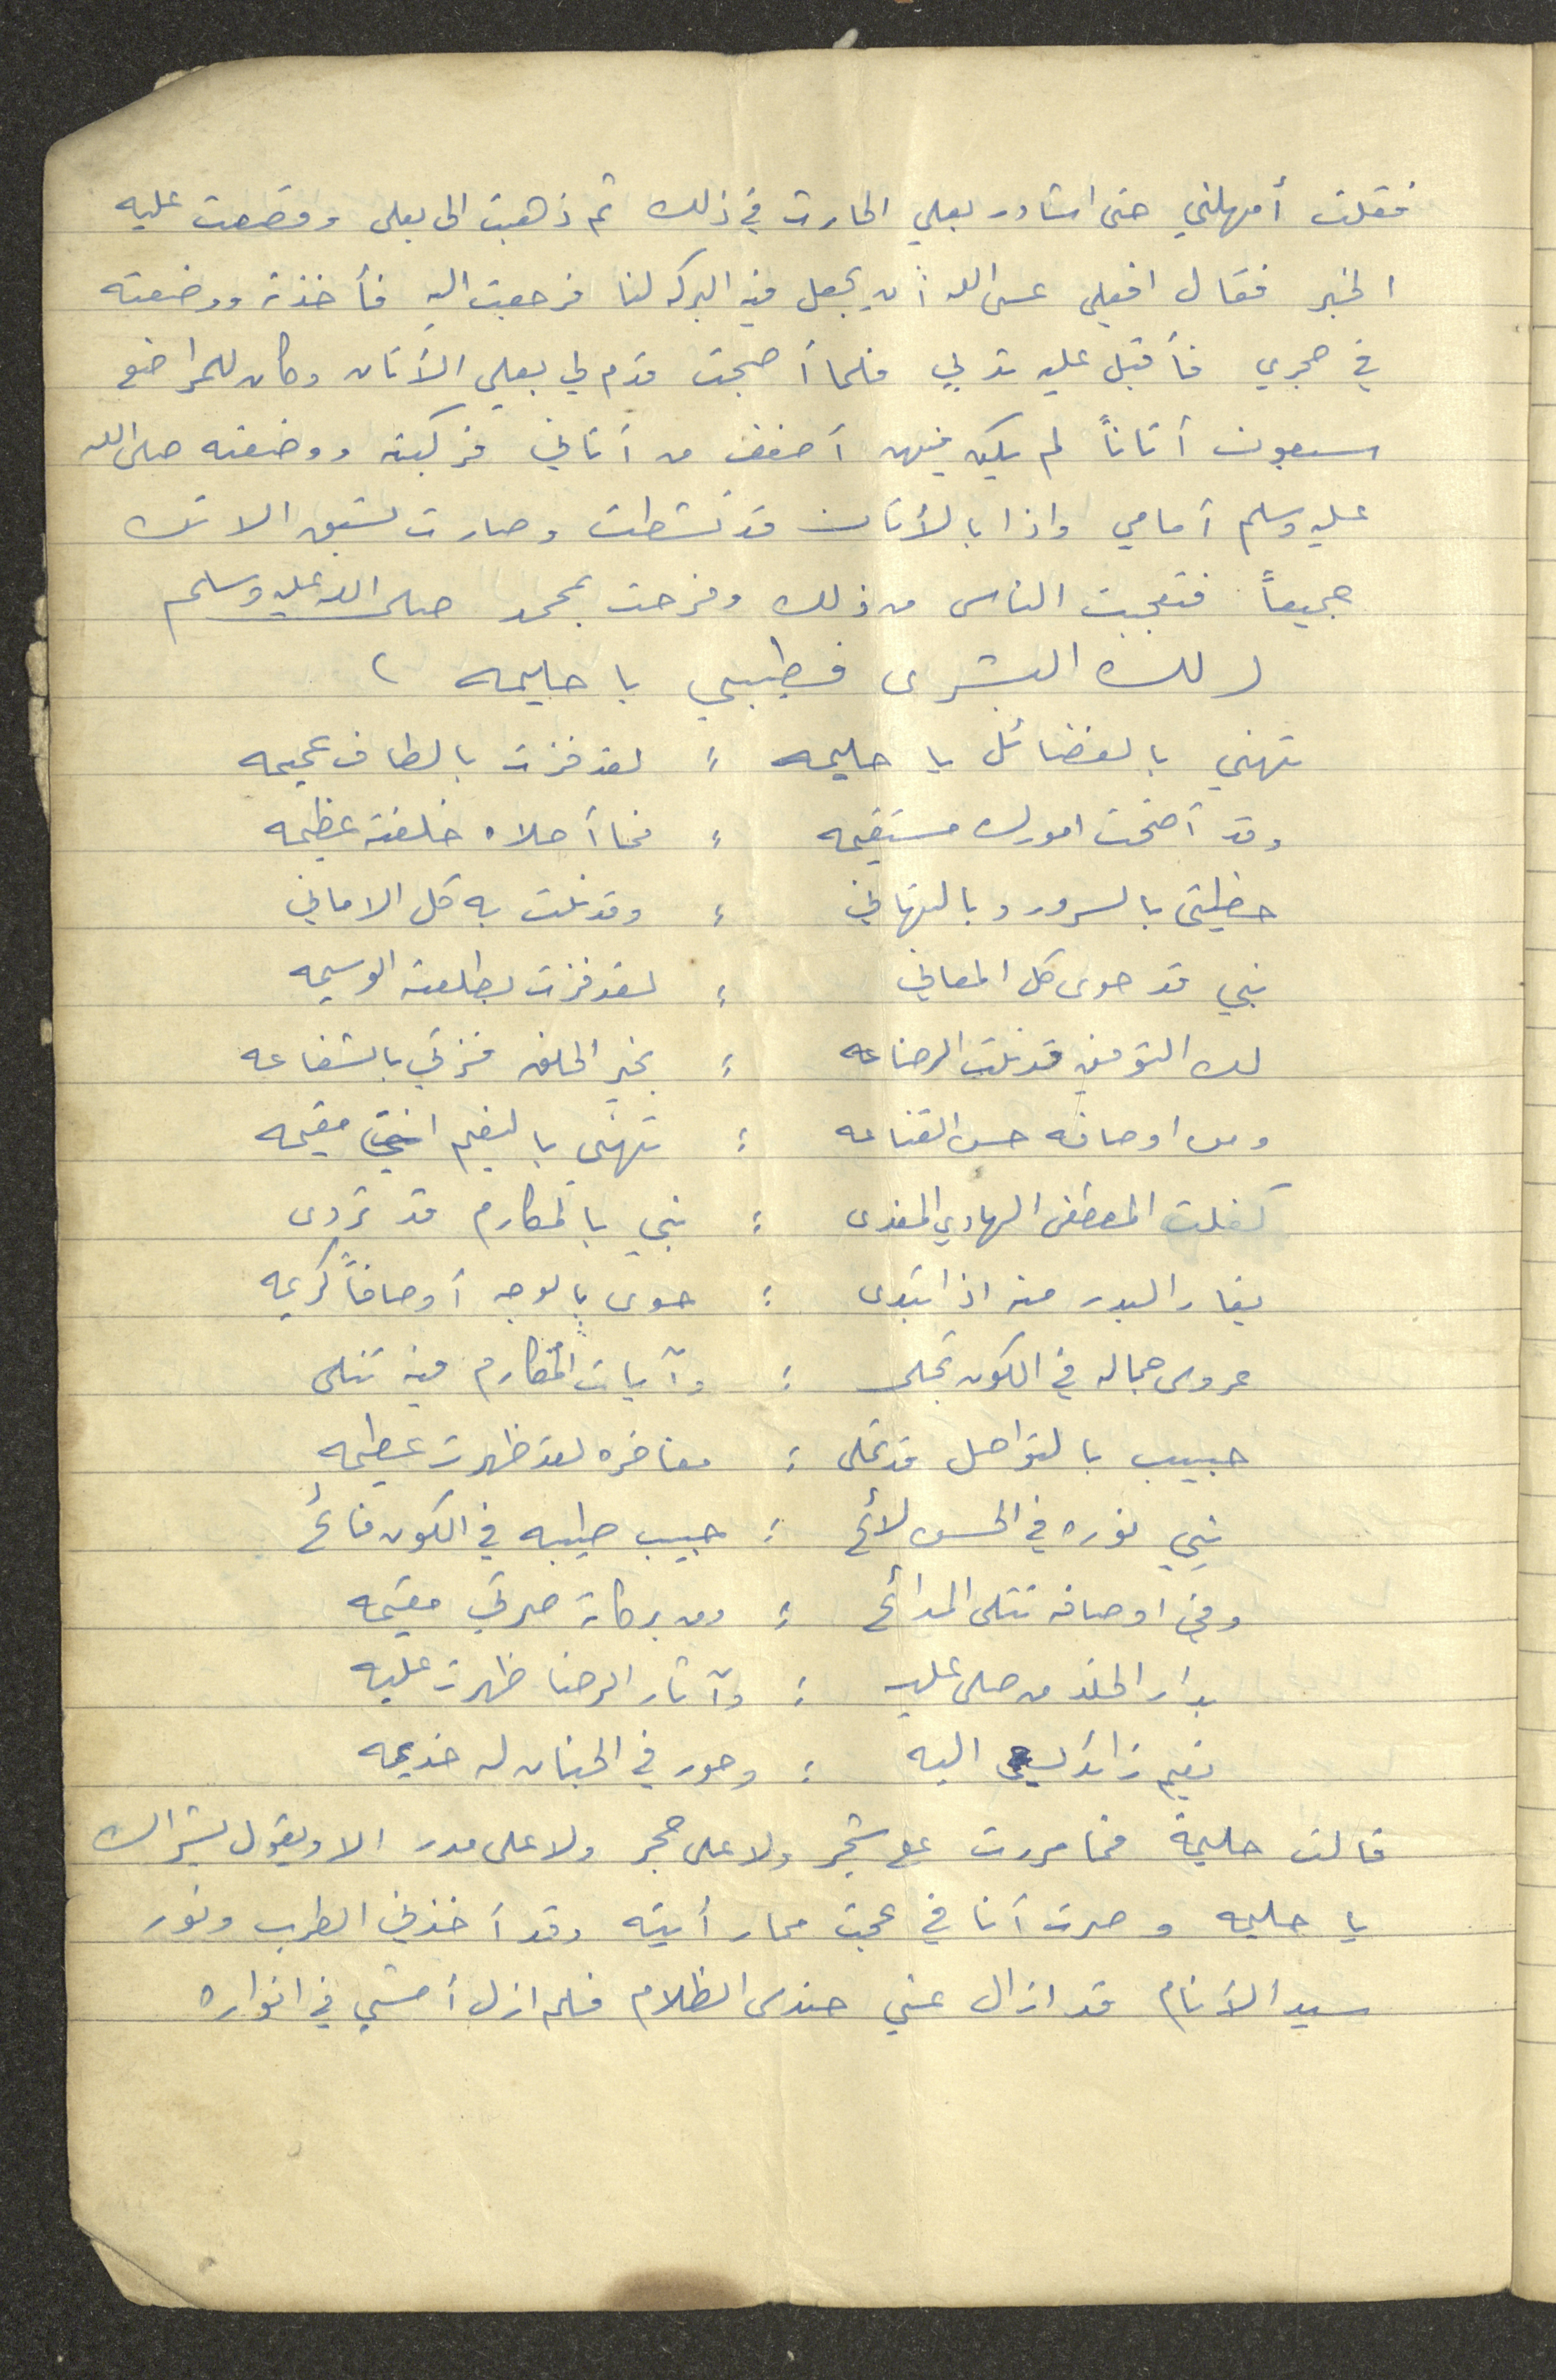 فقلت أمهلني حتى استاور بعلي الحارت في ذلك ثم ذهبت الى بعلى وقصصت عليه
الخبر فقال افعلي عسى الله أن يجعل فيه البركه لنا فرجعت اليه فأخذته ووضعته
في حجري فأقبل عليه تدلي فلما أصبحت قدم لي بعلي الأتان وكان للمراضع
سبعون أتاناً لم يكن فيهن أضعف من أتاني فركبته ووضعته صلى الله
عليه وسلم أمامي واذا بالأتان قد نشطت وصارت تسبق الاتك
جميعاً فتعجبت الناس من ذلك وفرحت بمحمد صلى الله عليه وسلم
( لك البشرى فطيبي يا حليمه )
تهني بالفضائل يا حليمه ؛ لقد فزت بالطاف عميمه
وقد أضحت امورك مستقيمه ؛ فما أحلاه خلفته عظيمه
حظيتى بالسرور وبالتهاني ؛ وقد نلت به كل الاماني
نبي قد حوى كل المعاني ؛ لقد فزت بطلعته الوسيمه
لك التوفيق قد نلت الرضاعه ؛ بخير الخلق فزتي بالشفاعه
ومن اوصافه حسن القناعه ؛ تهني بالنعيم انتي مقيمه
كفلت المصطفى الهادي المفدى ؛ نبي بالمكارم قد تردى
يغار البدر منه اذا تبدى ؛ حوى بالوجه أوصافاً كريمه
عروس جماله في الكون تجلى ؛ وآيات المكارم فيه تتلى
حبيب بالتواصل قد تملى ؛ مفاخره لقد ظهرت عظيمه
نبي نوره في الحسن لائح ؛ حبيب طيبه في الكون فائح
وفي اوصافه تتلى المدائح ؛ ومن بركاته صرتي مقيمه
بدار الخلد من صلى عليه ؛ وآثار الرضا ظهرت عليه
نعيم زائد يسعى اليه ؛ وحور في الجنان له خديمه
قالت حليمة فما مررت على شجر ولا على حجر ولا على مدر الا ويقول بشراك
يا حليمه وصرت أنا في عجب مما رأيته وقد أخذني الطرب ونور
سيد الأنام قد ازال عني حندس الظلام فلم ازل أمشي في انواره